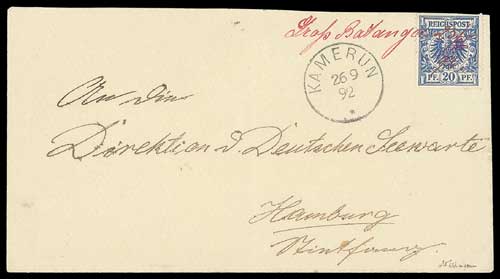 Groß Batanga
REICHSPOST
PF. 20 PF.
KAMERUN
26 9
92
*
An die
Direktion d. Deutschen Seewarte
Hamburg
Stintfang.